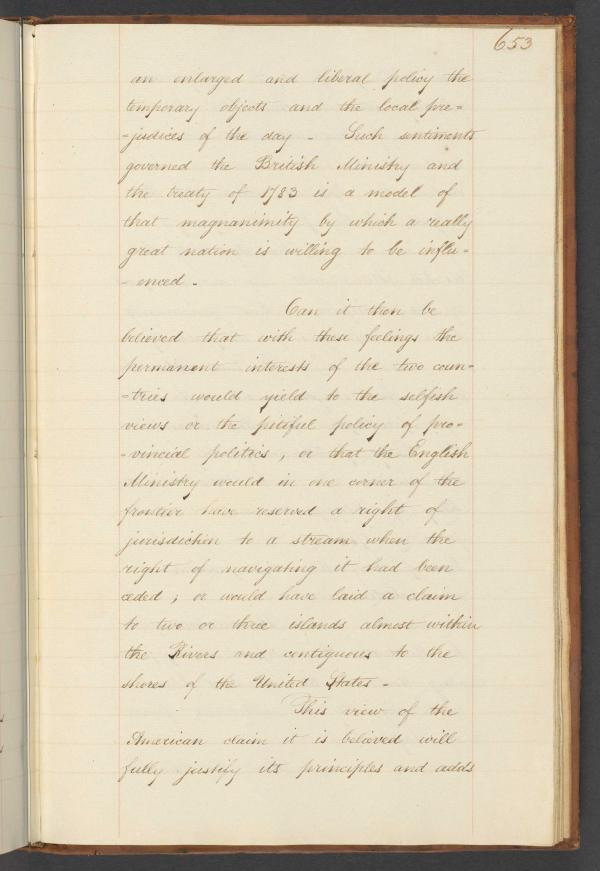 653
an enlarged and liberal policy the
temporary objects and the local pre=
-judices of the day - Such sentiments
governed the British Ministry and
the treaty of 1783 is a model of
that magnanimity by which a really
great nation is willing to be influ-
-enced -
Can it then be
believed that with these feelings the
permanent interests of the two coun-
-tries would yield to the selfish
views or the pitiful policy of pro-
-vincial politics, or that the English
Ministry would in one corner of the
frontier have reserved a right of
jurisdiction to a stream when the
right of navigating it had been
ceded; or would have laid a claim
to two or three islands almost within
the Rivers and contiguous to the
shores of the United States -
This view of the
American claim it is believed will
fully justify its principles and adds